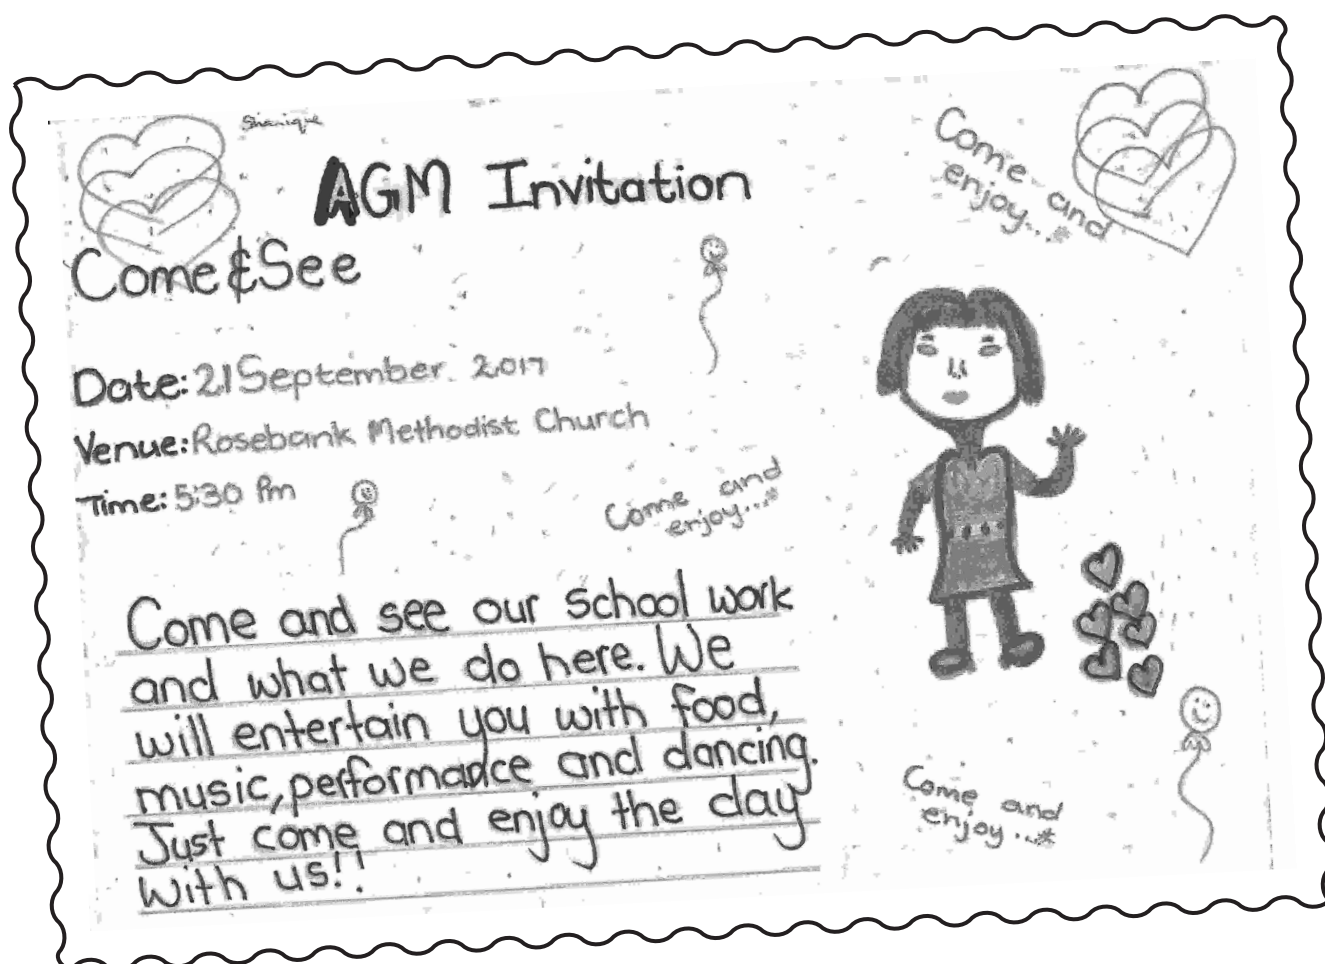 Shanique
AGM Invitation
Come & See
Date: 21 September 2017
Venue: Rosebank Methodist Church
Time: 5:30 Pm
Come and
enjoy...*
Come and see our school work
and what we do here. We
will entertain you with food,
music, performance and dancing.
Just come and enjoy the day
with us!!
Come and
enjoy...*
Come and
enjoy...*